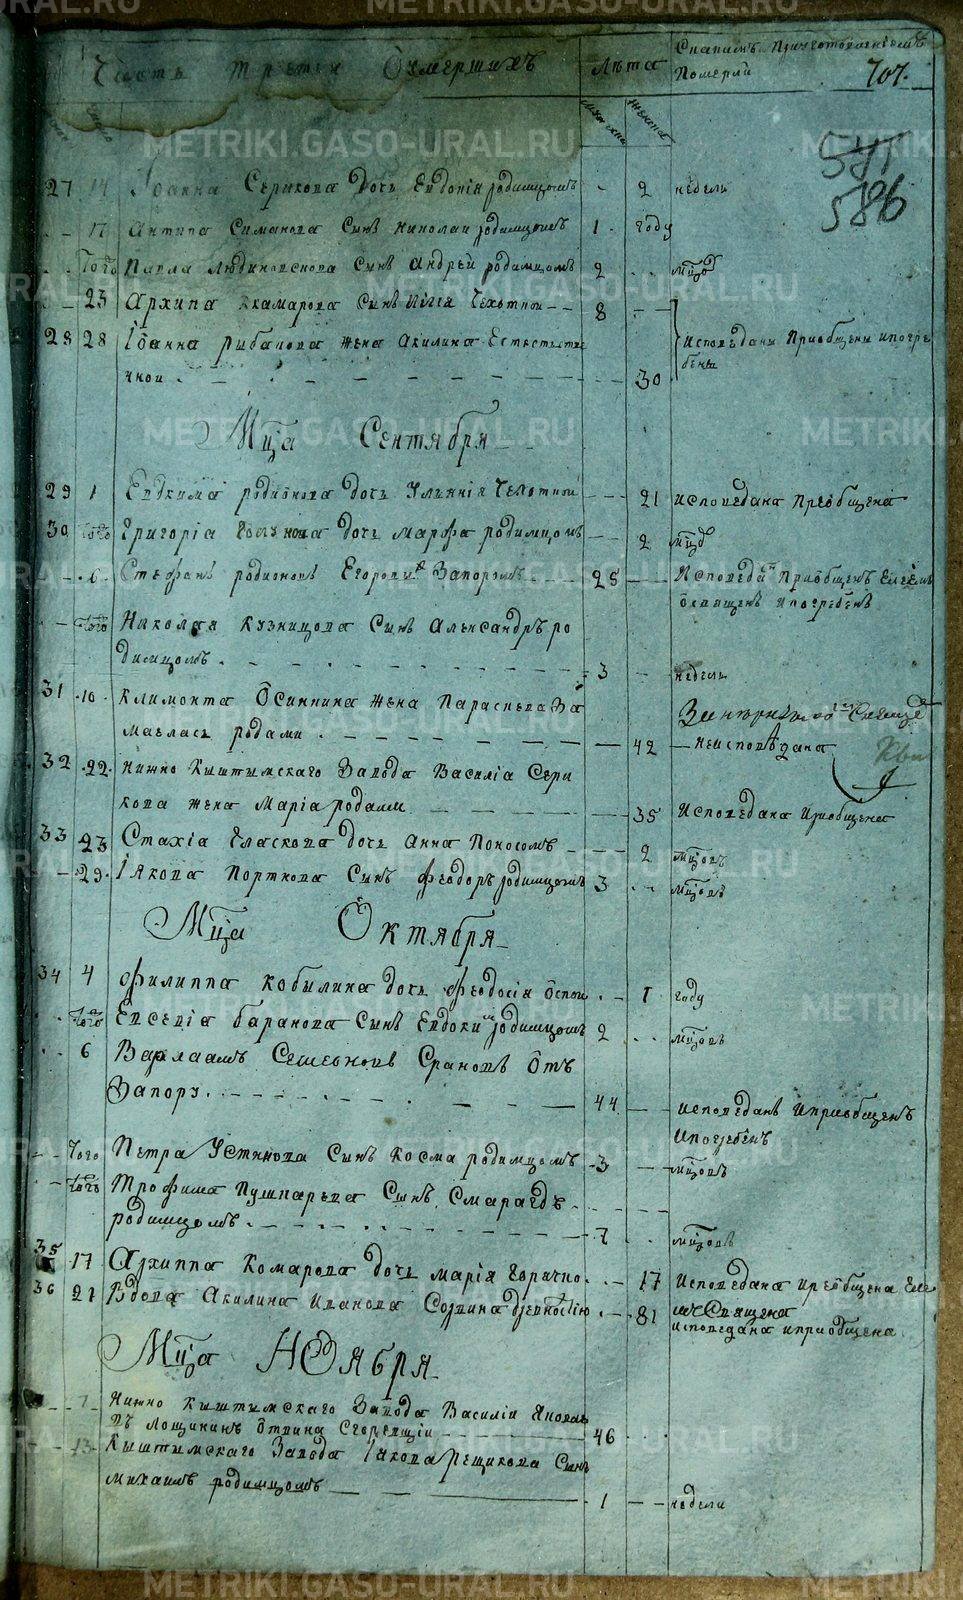 Часть третья Оумершихъ Лѣта Снапимъ Приготовлениемъ
Померли 707.
мужеска женска
541
586
27 14 Іоанна Серикова дочь Евдокія родимцомъ - 2 недель
- 17 Антипа Симанова Сынъ Николаи родимцомъ 1 году
того Павла Людиновскова Сынъ Андрей родимцомъ 2 мцов
- 23 Архипа Сынъ Илія Чехотнои 8
28 28 Іоанна рыбакова жена Акилина Естестве
Исповеданы Приобщены ипогре
бены
чнои 30
Мца Сентября
29 1 Евдкима родионова дочь Ульянія Чехотнои 21 исповедана Преобщена
30 того Григоріа дочь Марфа родимцомъ 2 мцов
- 6 Стефанъ родионовъ Егоровъ Запоромъ 25 Исповеданъ Приобщенъ Елеемъ
освященъ ипогребенъ
- того Николая Кузницова Сынъ Александръ ро
димцомъ 3 недель
31 10 Климонта Осиннина жена Парасковья За
маелась родами 42 Неисповедана
32 22 нижно Кыштымскаго Завода Василіа Сери
кова жена Маріа родами 35 Исповедана Приобщена
33 23 Стахіа Власкова дочь Анна Поносомъ 2 мцовъ
- 29 Іакова Порткова Сынъ Феодоръ родимцомъ 3 мцовъ
Мца Октября
34 4 Филиппа Кобилина дочь Феодосія Оспои 1 году
того Евсевіа баранова Сынъ Евдоким родимцомъ 2 мцовъ
6 Варлаамъ Семеоновъ Срановъ Отъ
Запору 44 исповеданъ иприобщенъ
ипогребенъ
- того Петра Устинова Сынъ Косма родимцомъ 3 мцовъ
- того Трофима Пушкарева Сынъ Смарагдъ
родимцомъ 7 мцовъ
35 17 Архиппа Комарова дочь Марія Горячко 17 Исповедана иприобщена Елее
36 21 Вдова Акилина Иванова древностію 81 мъ Священа
исповедана иприобщена
Мца Ноября
7 Нижно Кыштымскаго Завода Василіи Яковле
въ Лощининъ Отвина Сгоревшіи 46
13 Кыштымскаго Завода Іакова Рещикова Сынъ
Михаилъ родимцомъ 1 недели
METRIKI.GASO-URAL.RU